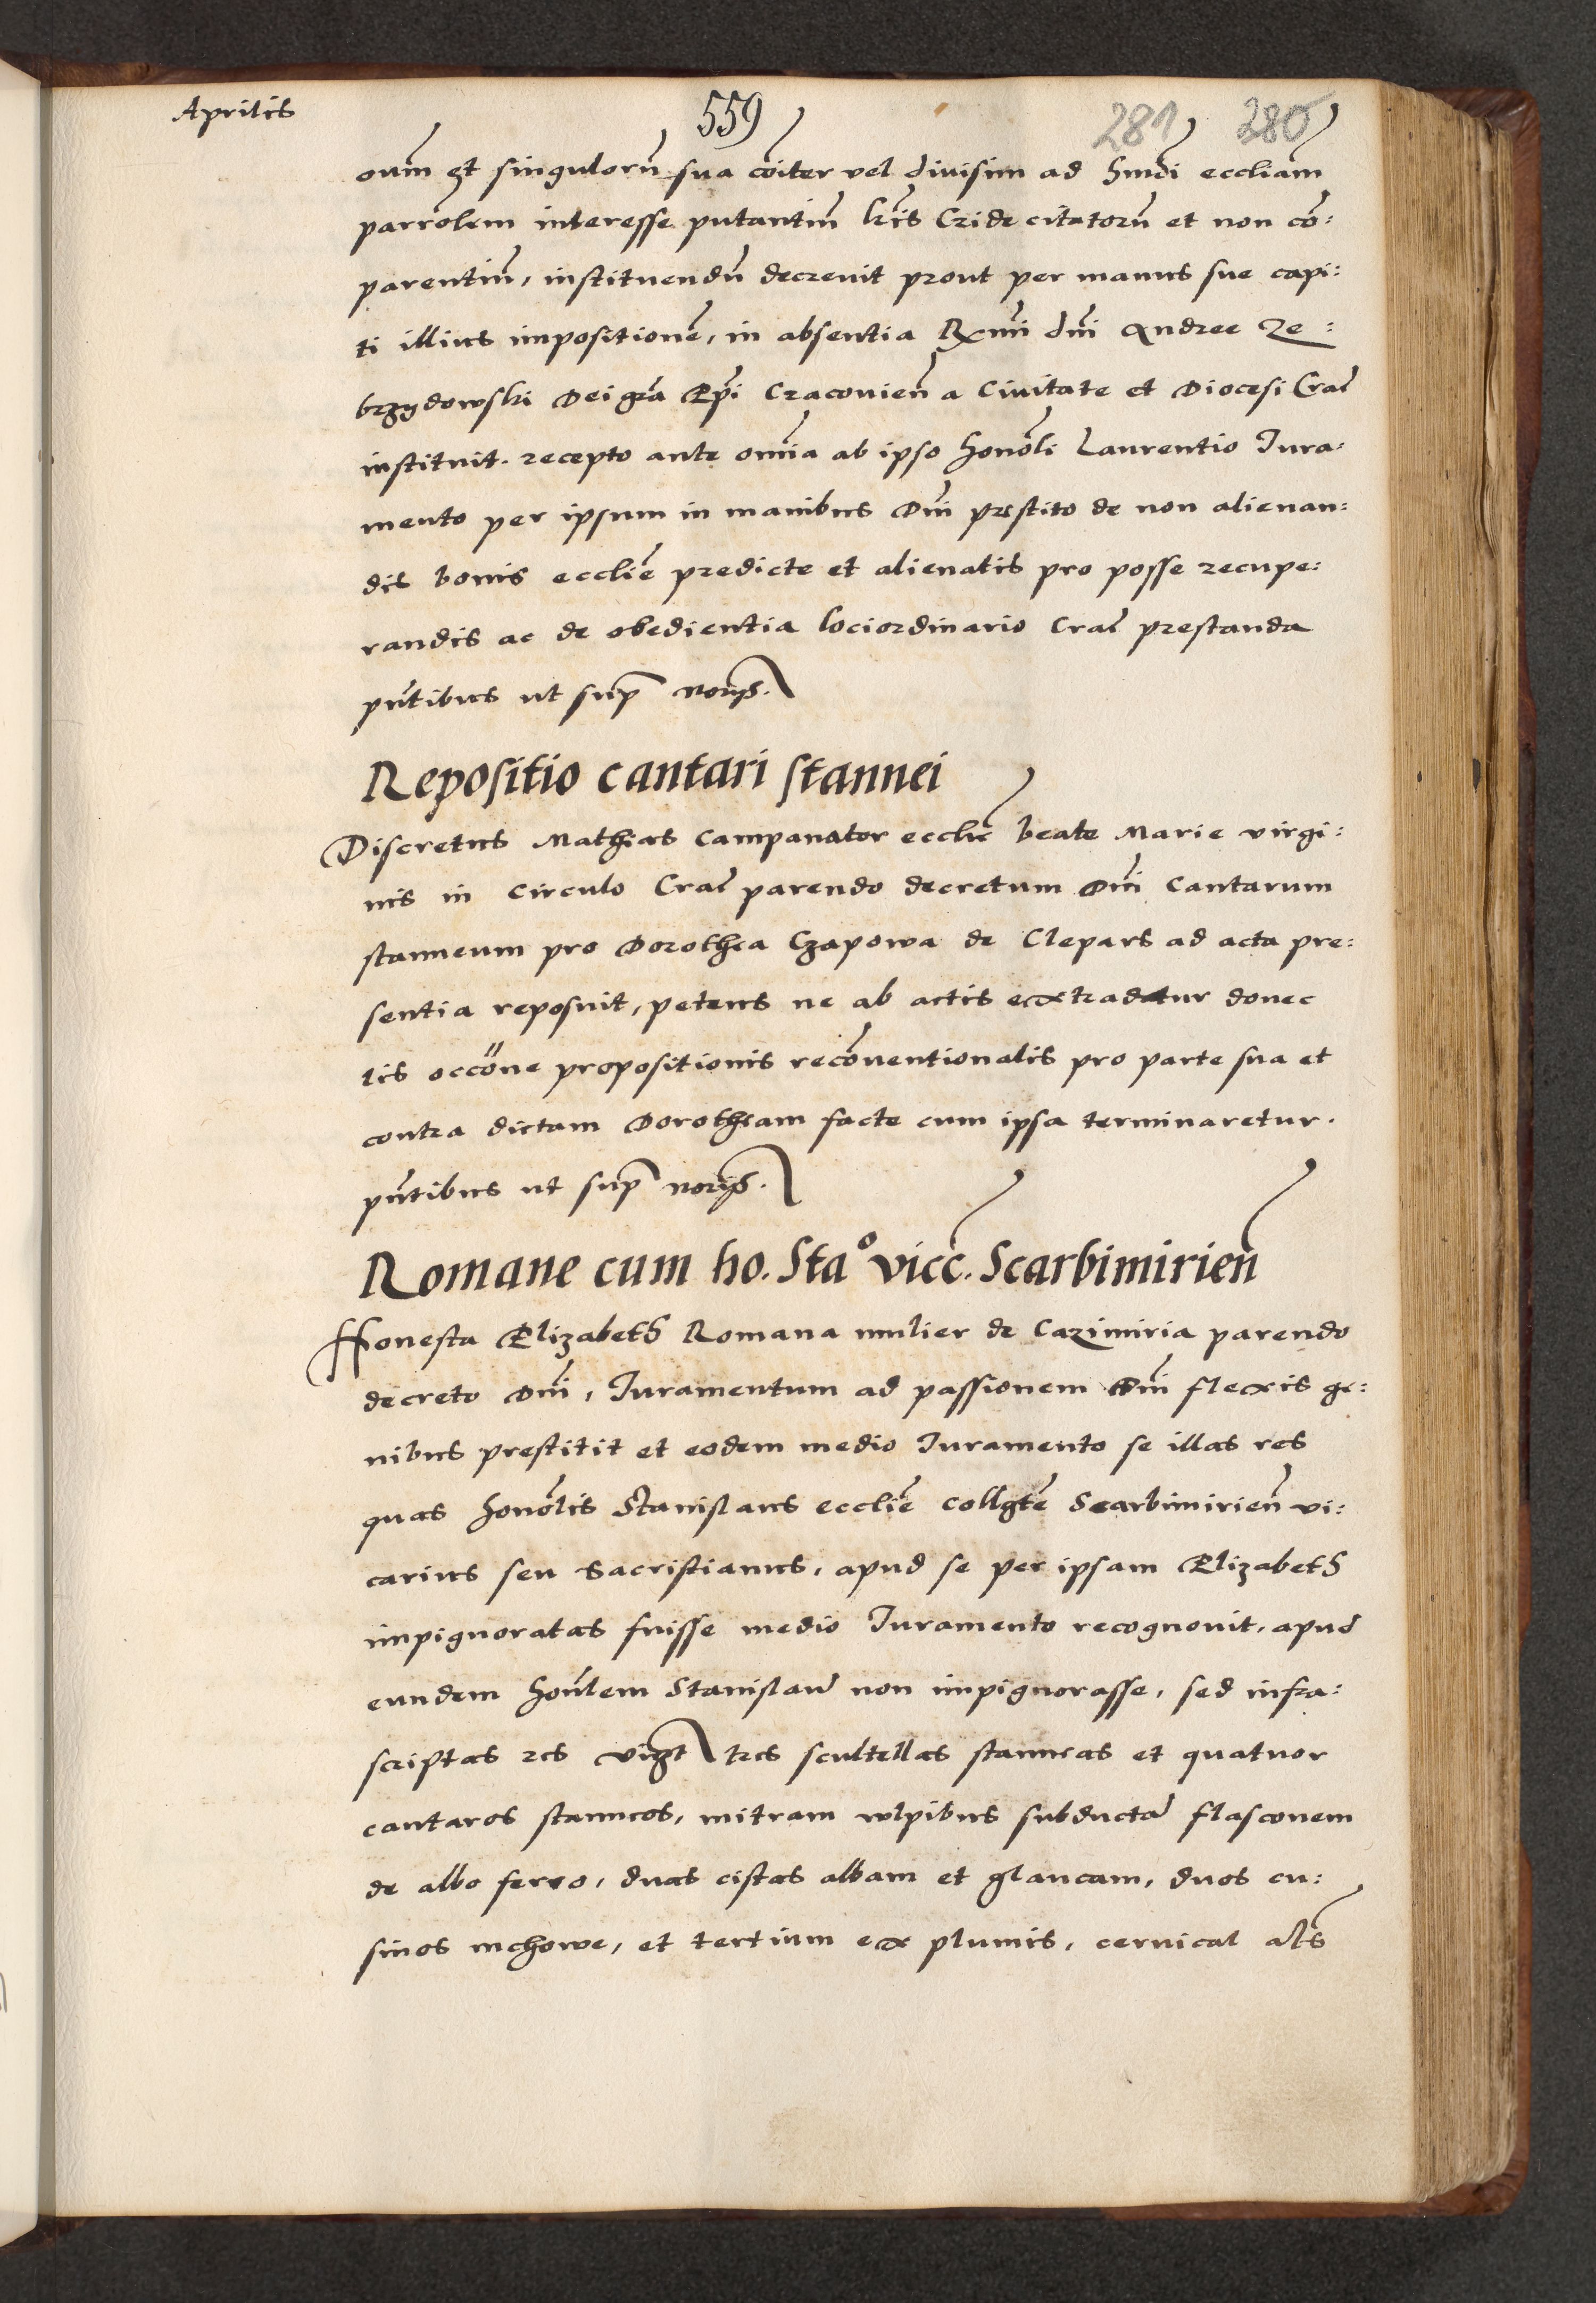 Aprilis
559
281 280
oum̄ et singuloru͂ sua co͂iter vel diuisim ad hm̄di eccliam̄
parrōlem interesse putantiu͂ lr̄is Cride citatoru͂ et non co͂:
parentiu͂, instituendu͂ decreuit prout per manus sue capi:
ti illius impositione͂, in absentia Rx̄mi dn̄i Andree Ze:
brzydowski Dei gr̄a Ep̄i Cracovien̄ a Ciuitate et Diocesi Crac̄
instituit. recepto ante om̄ia ab ipso honōli Laurentio Iura:
mento per ipsum in manibus Dn̄i prestito de non alienan:
dis bonis ecclie͂ predicte et alienatis pro posse recupe:
randis ac de obedientia lociordinario Crac̄ prestanda
pn̄tibus ut sup̄ noriis.
Repositio cantari stannei
Discretus Mathias Campanator ecclie͂ beate Marie virgi:
nis in Circulo Crac̄ parendo decretum Dn̄i Cantarum
stanneum pro Dorothea Czapowa de Clepars ad acta pre:
sentia reposuit, petens ne ab actis extradatur donec
lis occōne propositionis reco͂uentionalis pro parte sua et
contra dictam Dorotheam facte cum ipsa terminaretur.
pn̄tibus ut sup̄ noriis.
Romane cum ho. Sta° vicc̄. Scarbimirien̄
Honesta Elizabeth Romana mulier de Cazimiria parendo
decreto Dn̄i, Iuramentum ad passionem Dn̄i flexis ge:
nibus prestitit et eodem medio Iuramento se illas res
quas honōlis Stanislaus ecclie͂ collgte͂ Scarbimirien̄ vi:
carius seu Sacristianus, apud se per ipsam Elizabeth
impignoratas fuisse medio Iuramento recognouit, apud
eundem honl̄em Stanislau͂ non impignorasse, sed infra:
scriptas res vigt tres scultellas stanneas et quatuor
cantaros stanneos, mitram wlpibus subducta͂ flasconem
de albo ferro, duas cistas albam et glaucam, duos cu:
sinos mchowe, et tertium ex plumis, cervical als̄